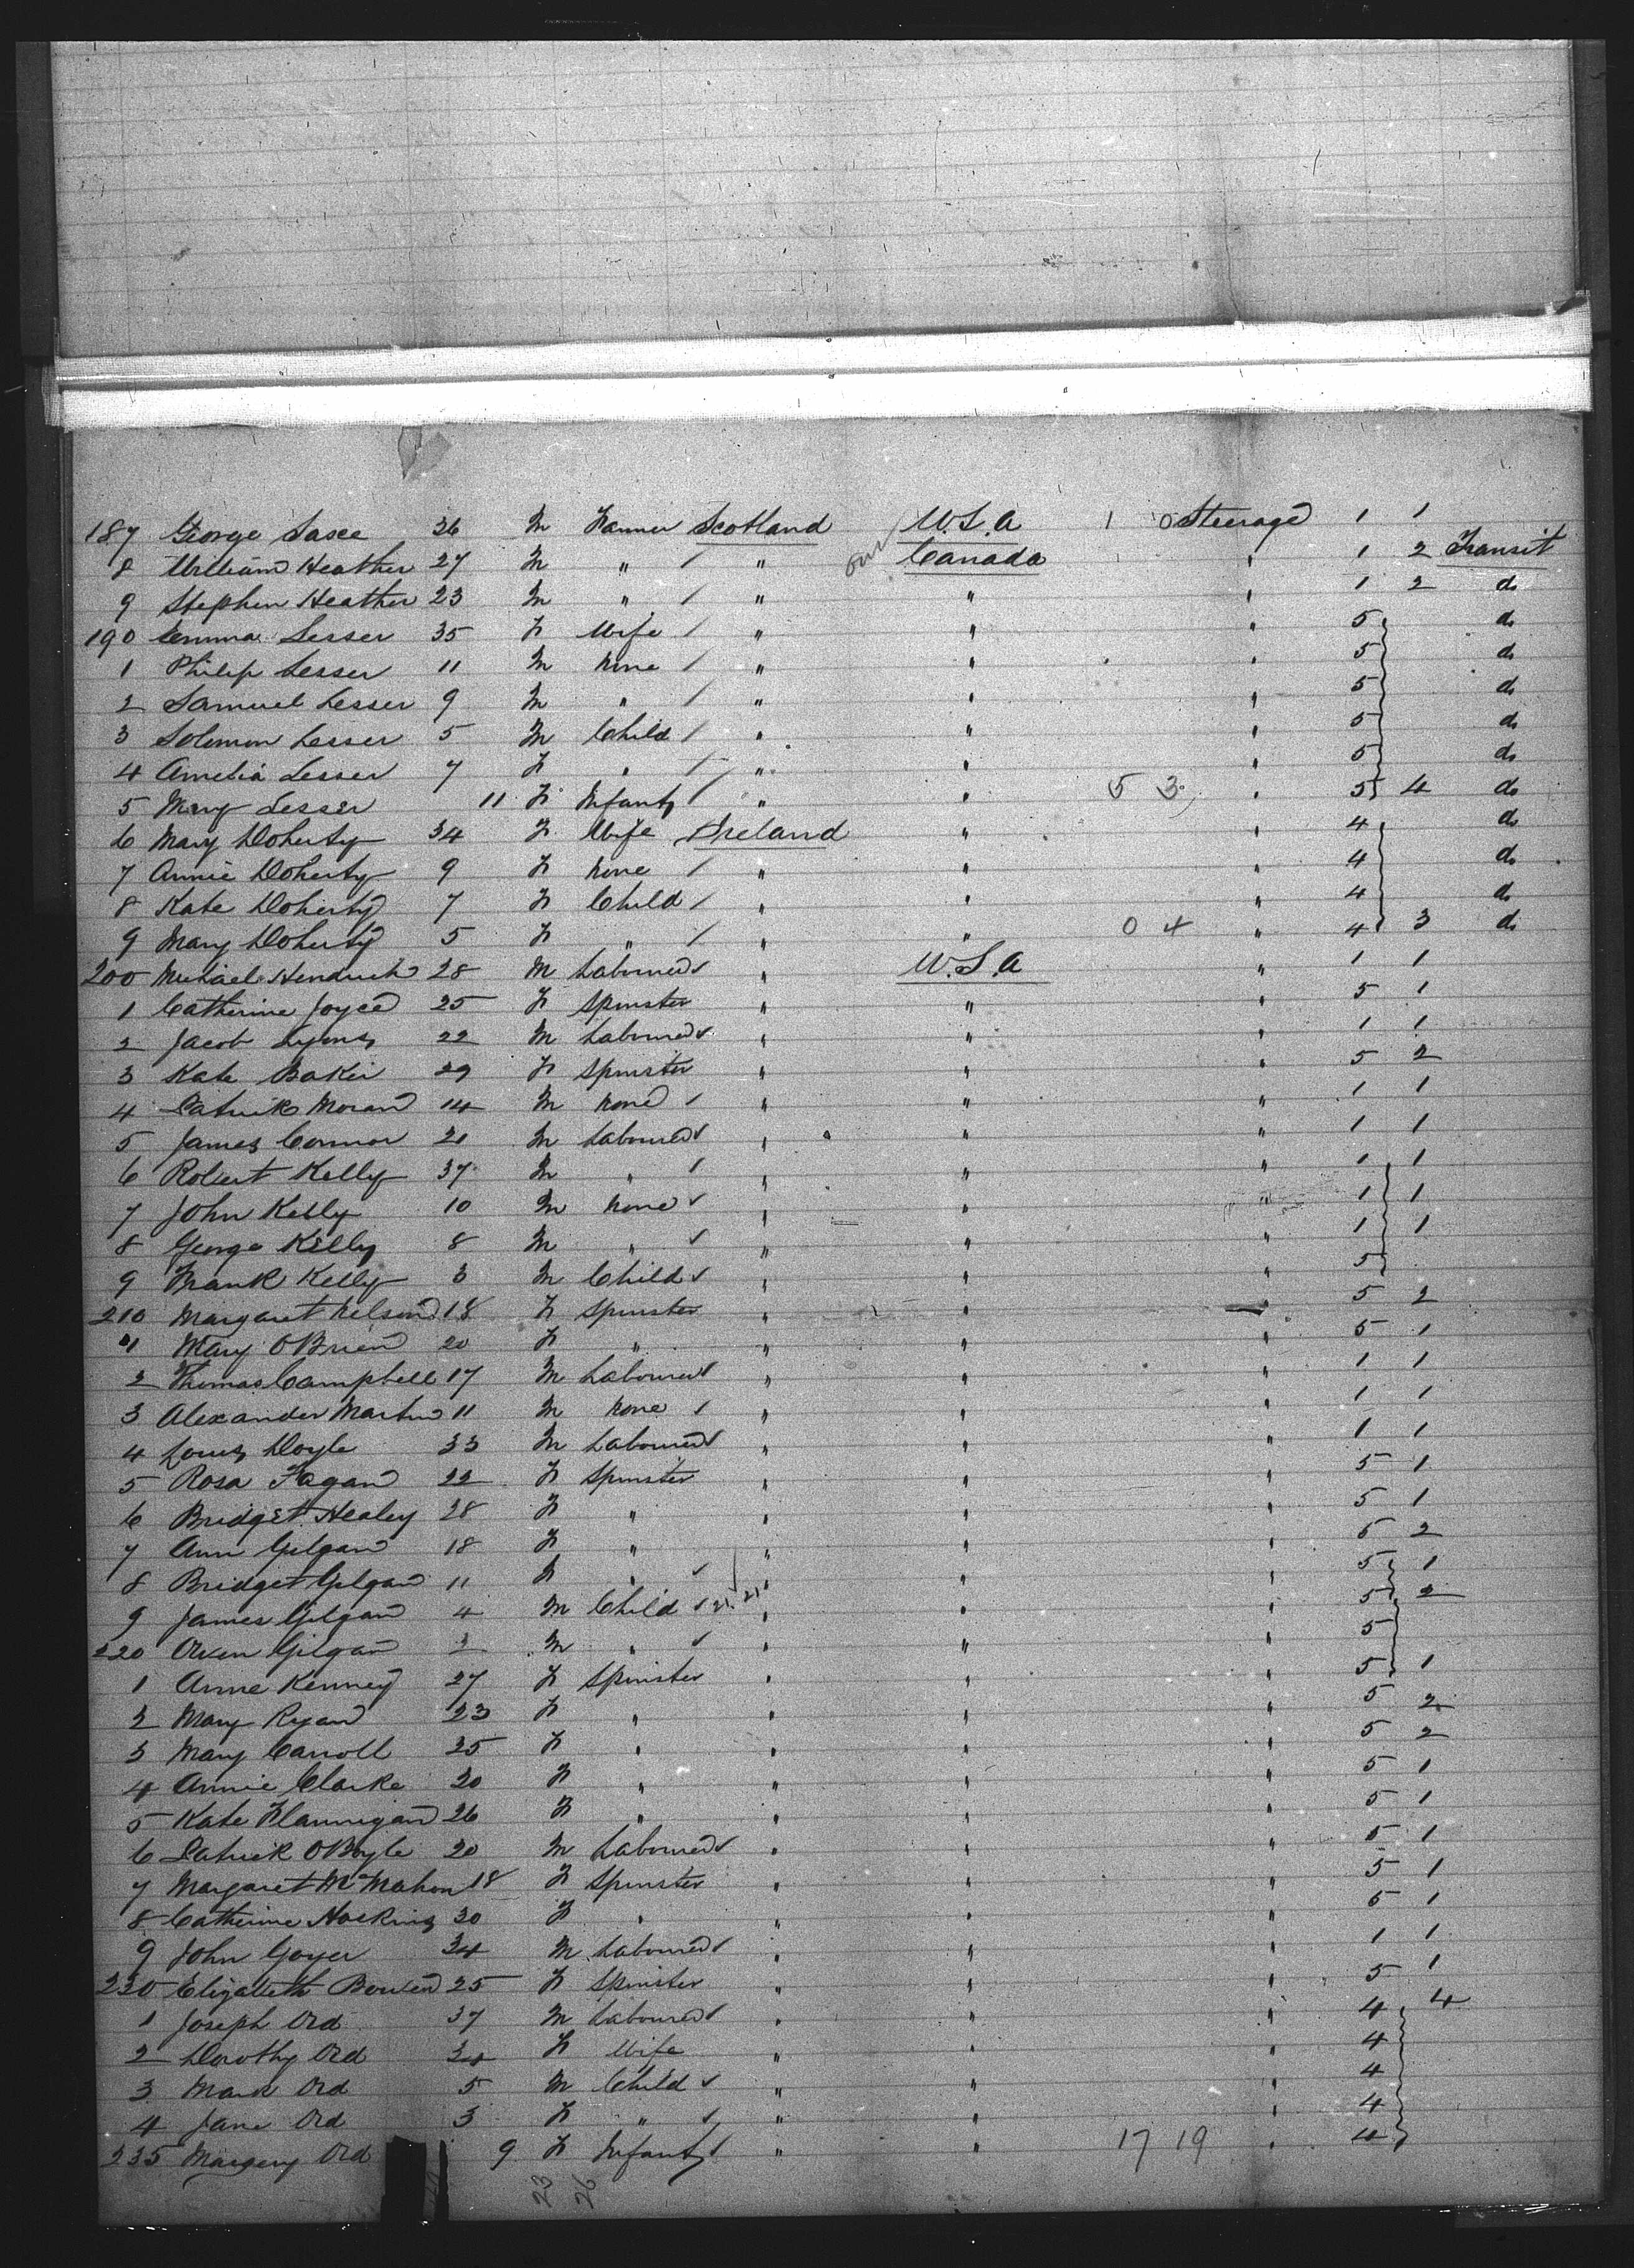 187 George 36 M Farmer Scotland U.S.A 1 0 Steerage 1 1
8 William Heather 27 M " / " Canada " 1 2 Transit
9 Stephen Heather 23 M " / " " " 1 2 do
190 Emma Lesser 35 F Wife / " " " 5 do
1 Philip Lesser 11 M None / " " " 5 do
2 Samuel Lesser 9 M " / " " " 5 do
3 Solomon Lesser 5 M Child / " " " 5 do
4 Amelia Lesser 7 F " / " " " 5 do
5 Mary Lesser 11 F Infant / " " 5 3 " 5 4 do
6 Mary Doherty 34 F Wife Ireland " " 4 do
7 Annie Doherty 9 F None / " " " 4 do
8 Kate Doherty 7 F Child / " " " 4 do
9 Mary Doherty 5 F " / " " 0 4 " 4 3 do
200 Michael 28 M Labourer " U.S.A " 1 1
1 Catherine Joyce 25 F Spinster " " " 5 1
2 Jacob Lyons 22 M Labourer " " " 1 1
3 Kate Baker 29 F Spinster " " " 5 2
4 Patrick Moran 14 M None / " " " 1 1
5 James Connor 21 M Labourer " " " 1 1
6 Robert Kelly 37 M " / " " " 1 1
7 John Kelly 10 M None " " " 1 1
8 George Kelly 8 M " " " " 1 1
9 Frank Kelly 3 M Child " " " 5
210 Margaret Nelson 18 F Spinster " " " 5 2
1 Mary O'Brien 20 F " " " " 5 1
2 Thomas Campbell 17 M Labourer " " " 1 1
3 Alexander Martin 11 M None / " " " 1 1
4 Doyle 33 M Labourer " " " 1 1
5 Rosa Fagan 22 F Spinster " " " 5 1
6 Bridget Healey 28 F " " " " 5 1
7 Ann Gilgan 18 F " " " " 5 2
8 Bridget Gilgan 11 F " " " " 5 1
9 James Gilgan 4 M Child " " " 5 2
220 Owen Gilgan M " " " " 5
1 Anne Kenney 27 F Spinster " " " 5 1
2 Mary Ryan 23 F " " " " 5 2
3 Mary Carroll 25 F " " " " 5 2
4 Annie Clarke 20 F " " " " 5 1
5 Kate Flannigan 26 F " " " " 5 1
6 Patrick O'Boyle 20 M Labourer " " " 5 1
7 Margaret McMahon 18 F Spinster " " " 5 1
8 Catherine Hocking 30 F " " " " 5 1
9 John Goyer 34 M Labourer " " " 1 1
230 Elizabeth 25 F Spinster " " " 5 1
1 Joseph Ord 37 M Labourer " " " 4 4
2 Dorothy Ord 34 F Wife " " " 4
3 Mark Ord 5 M Child " " " 4
4 Jane Ord 3 F " " " " 4
235 Margery Ord 9 F Infant " " 17 19 " 4
23 26